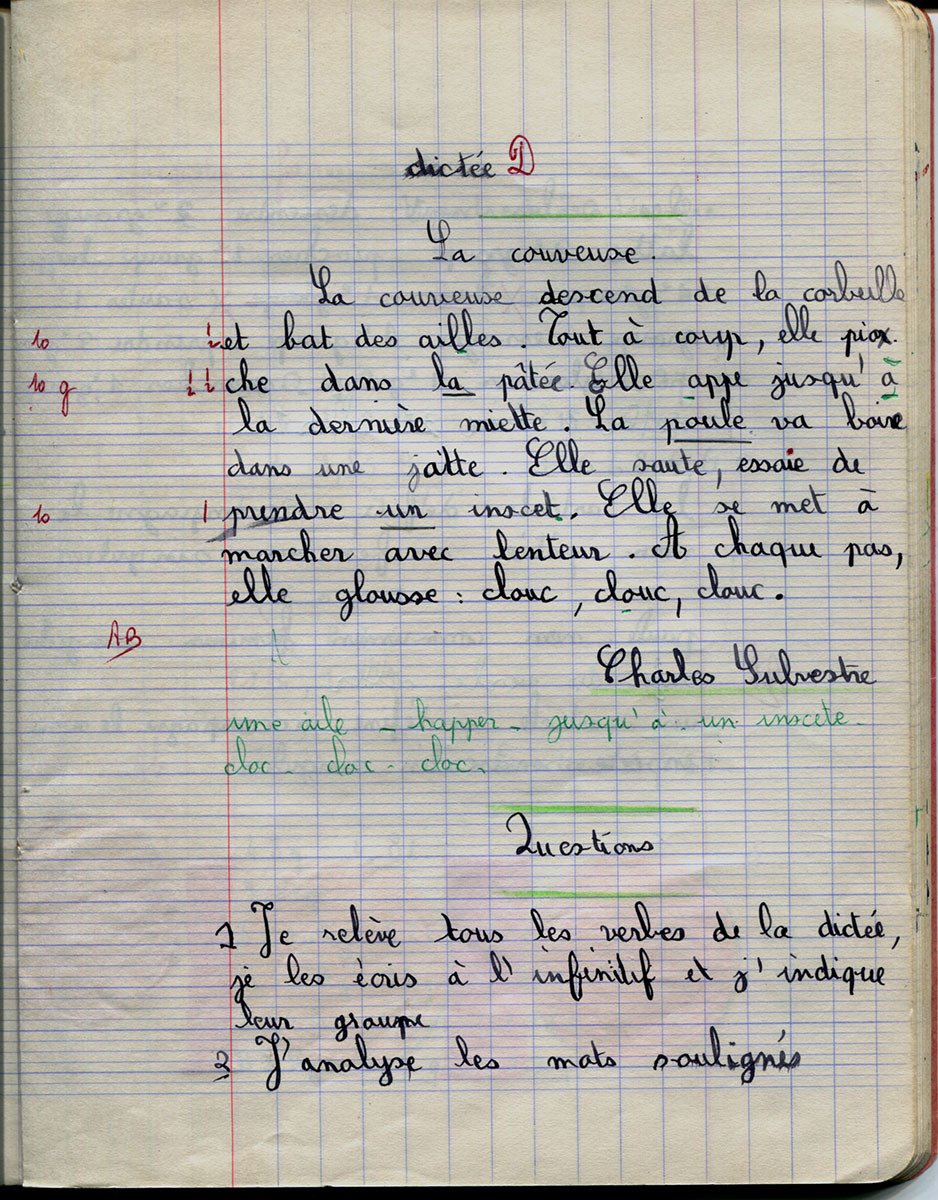 dictée D
La couveuse.
La couveuse descend de la corbeille
10 et bat des ailles. Tout à coup, elle piox.
10 g che dans la pâtée. Elle appe jusqu'à
la dernière miette. La poule va boire
dans une jatte. Elle saute, essaie de
10 prendre un inscet. Elle se met à
marcher avec lenteur. A chaque pas,
elle glousse : clouc, clouc, clouc.
AB
Charles Sylvestre
une aile - happer - jusqu'à - un inscete -
cloc - cloc - cloc.
Questions
1 Je relève tous les verbes de la dictée,
je les écris à l'infinitif et j'indique
leur groupe
2 J'analyse les mots soulignés